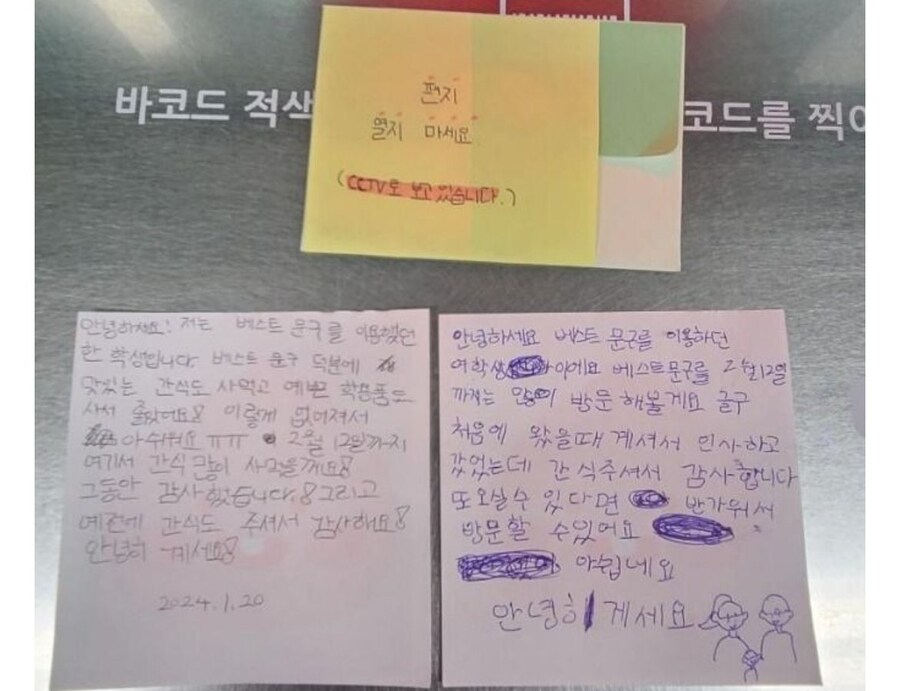 바코드 적색
코드를 찍어
편지
열지 마세요
(CCTV로 보고 있습니다.)
안녕하세요! 저는 베스트 문구를 이용했던
한 학생입니다. 베스트 문구 덕분에
맛있는 간식도 사먹고 예쁜 학용품도
사서 좋았어요! 이렇게 없어져서
아쉬워요 ㅠㅠ 2월 12일까지
여기서 간식 많이 사먹을께요!
그동안 감사했습니다! 그리고
예전에 간식도 주셔서 감사해요!
안녕히 계세요!
2024.1.20
안녕하세요 베스트 문구를 이용하던
여학생 이에요 베스트문구를 2월12일
까지는 많이 방문해볼게요 글구
처음에 왔을때 계셔서 인사하고
갔었는데 간식주셔서 감사합니다
또오실수 있다면 반가워서
방문할 수있어요
아쉽네요
안녕히 게세요